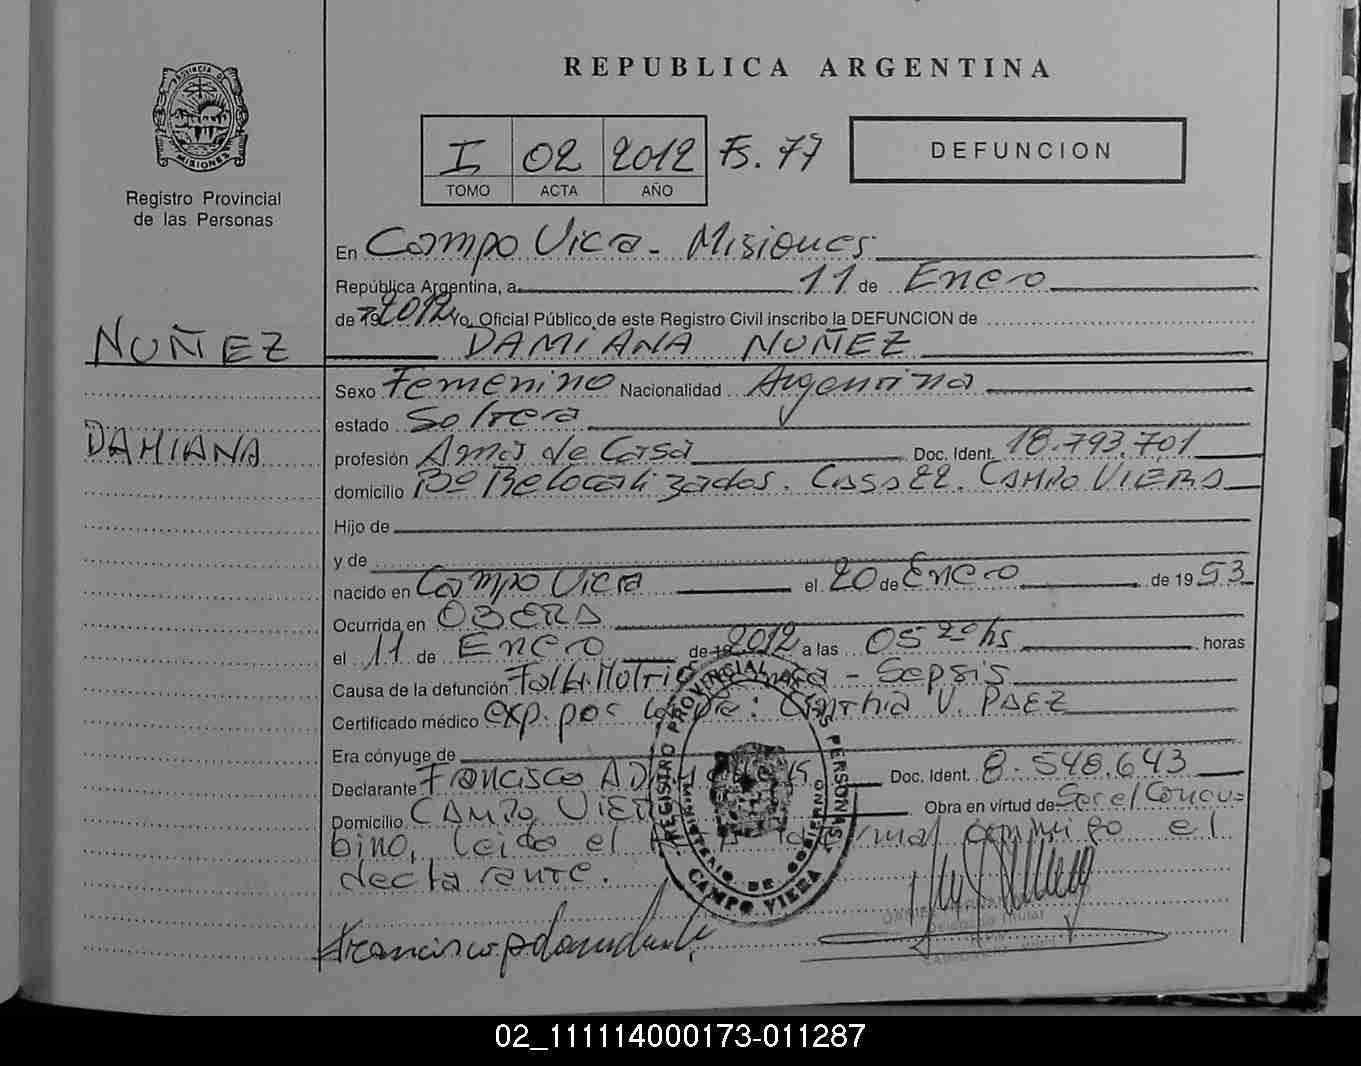 REPUBLICA ARGENTINA
PROVINCIA DE MISIONES
Registro Provincial
de las Personas
I 02 2012 Fs. 77
TOMO ACTA AÑO
DEFUNCION
En Campo Viera - Misiones
República Argentina, a 11 de Enero
de 19 2012 Yo, Oficial Público de este Registro Civil inscribo la DEFUNCION de
NUÑEZ
DAMIANA NUÑEZ
Sexo Femenino Nacionalidad Argentina
estado Soltera
DAMIANA
profesión Ama de Casa Doc. Ident. 18.793.701
domicilio Bº Relocalizados. Casa 22. CAMPO VIERA
Hijo de
y de
nacido en Campo Viera el 20 de Enero de 1953
Ocurrida en OBERA
el 11 de Enero de 19 2012 a las 05 20 hs horas
Causa de la defunción Falla - Sepsis
Certificado médico exp. por la Dra: Cinthia V. PAEZ
Era cónyuge de
Declarante Francisco Doc. Ident. 8.548.643
Domicilio CAMPO VIERA Obra en virtud de Ser el Concu=
bino, Leido el conmigo el
declarante.
REGISTRO PROVINCIAL DE LAS PERSONAS
MINISTERIO DE GOBIERNO
CAMPO VIERA
Francisco
Titular
02_111114000173-011287